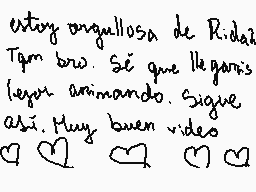 estoy orgullosa de Ridah
Tqm bro. Sé que llegarás
lejos animando. Sigue
así. Muy buen video